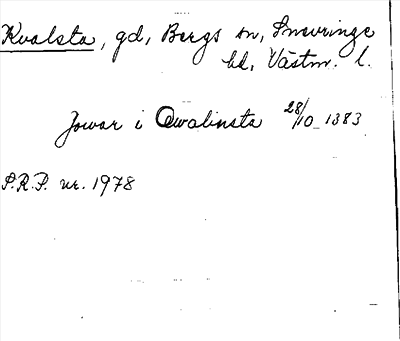 Kvalsta, gd, Bergs sn, Snevringe
hd, Västm. l.
Jowar i Qwalinsta 28/10 1383
S.R.P. nr. 1978